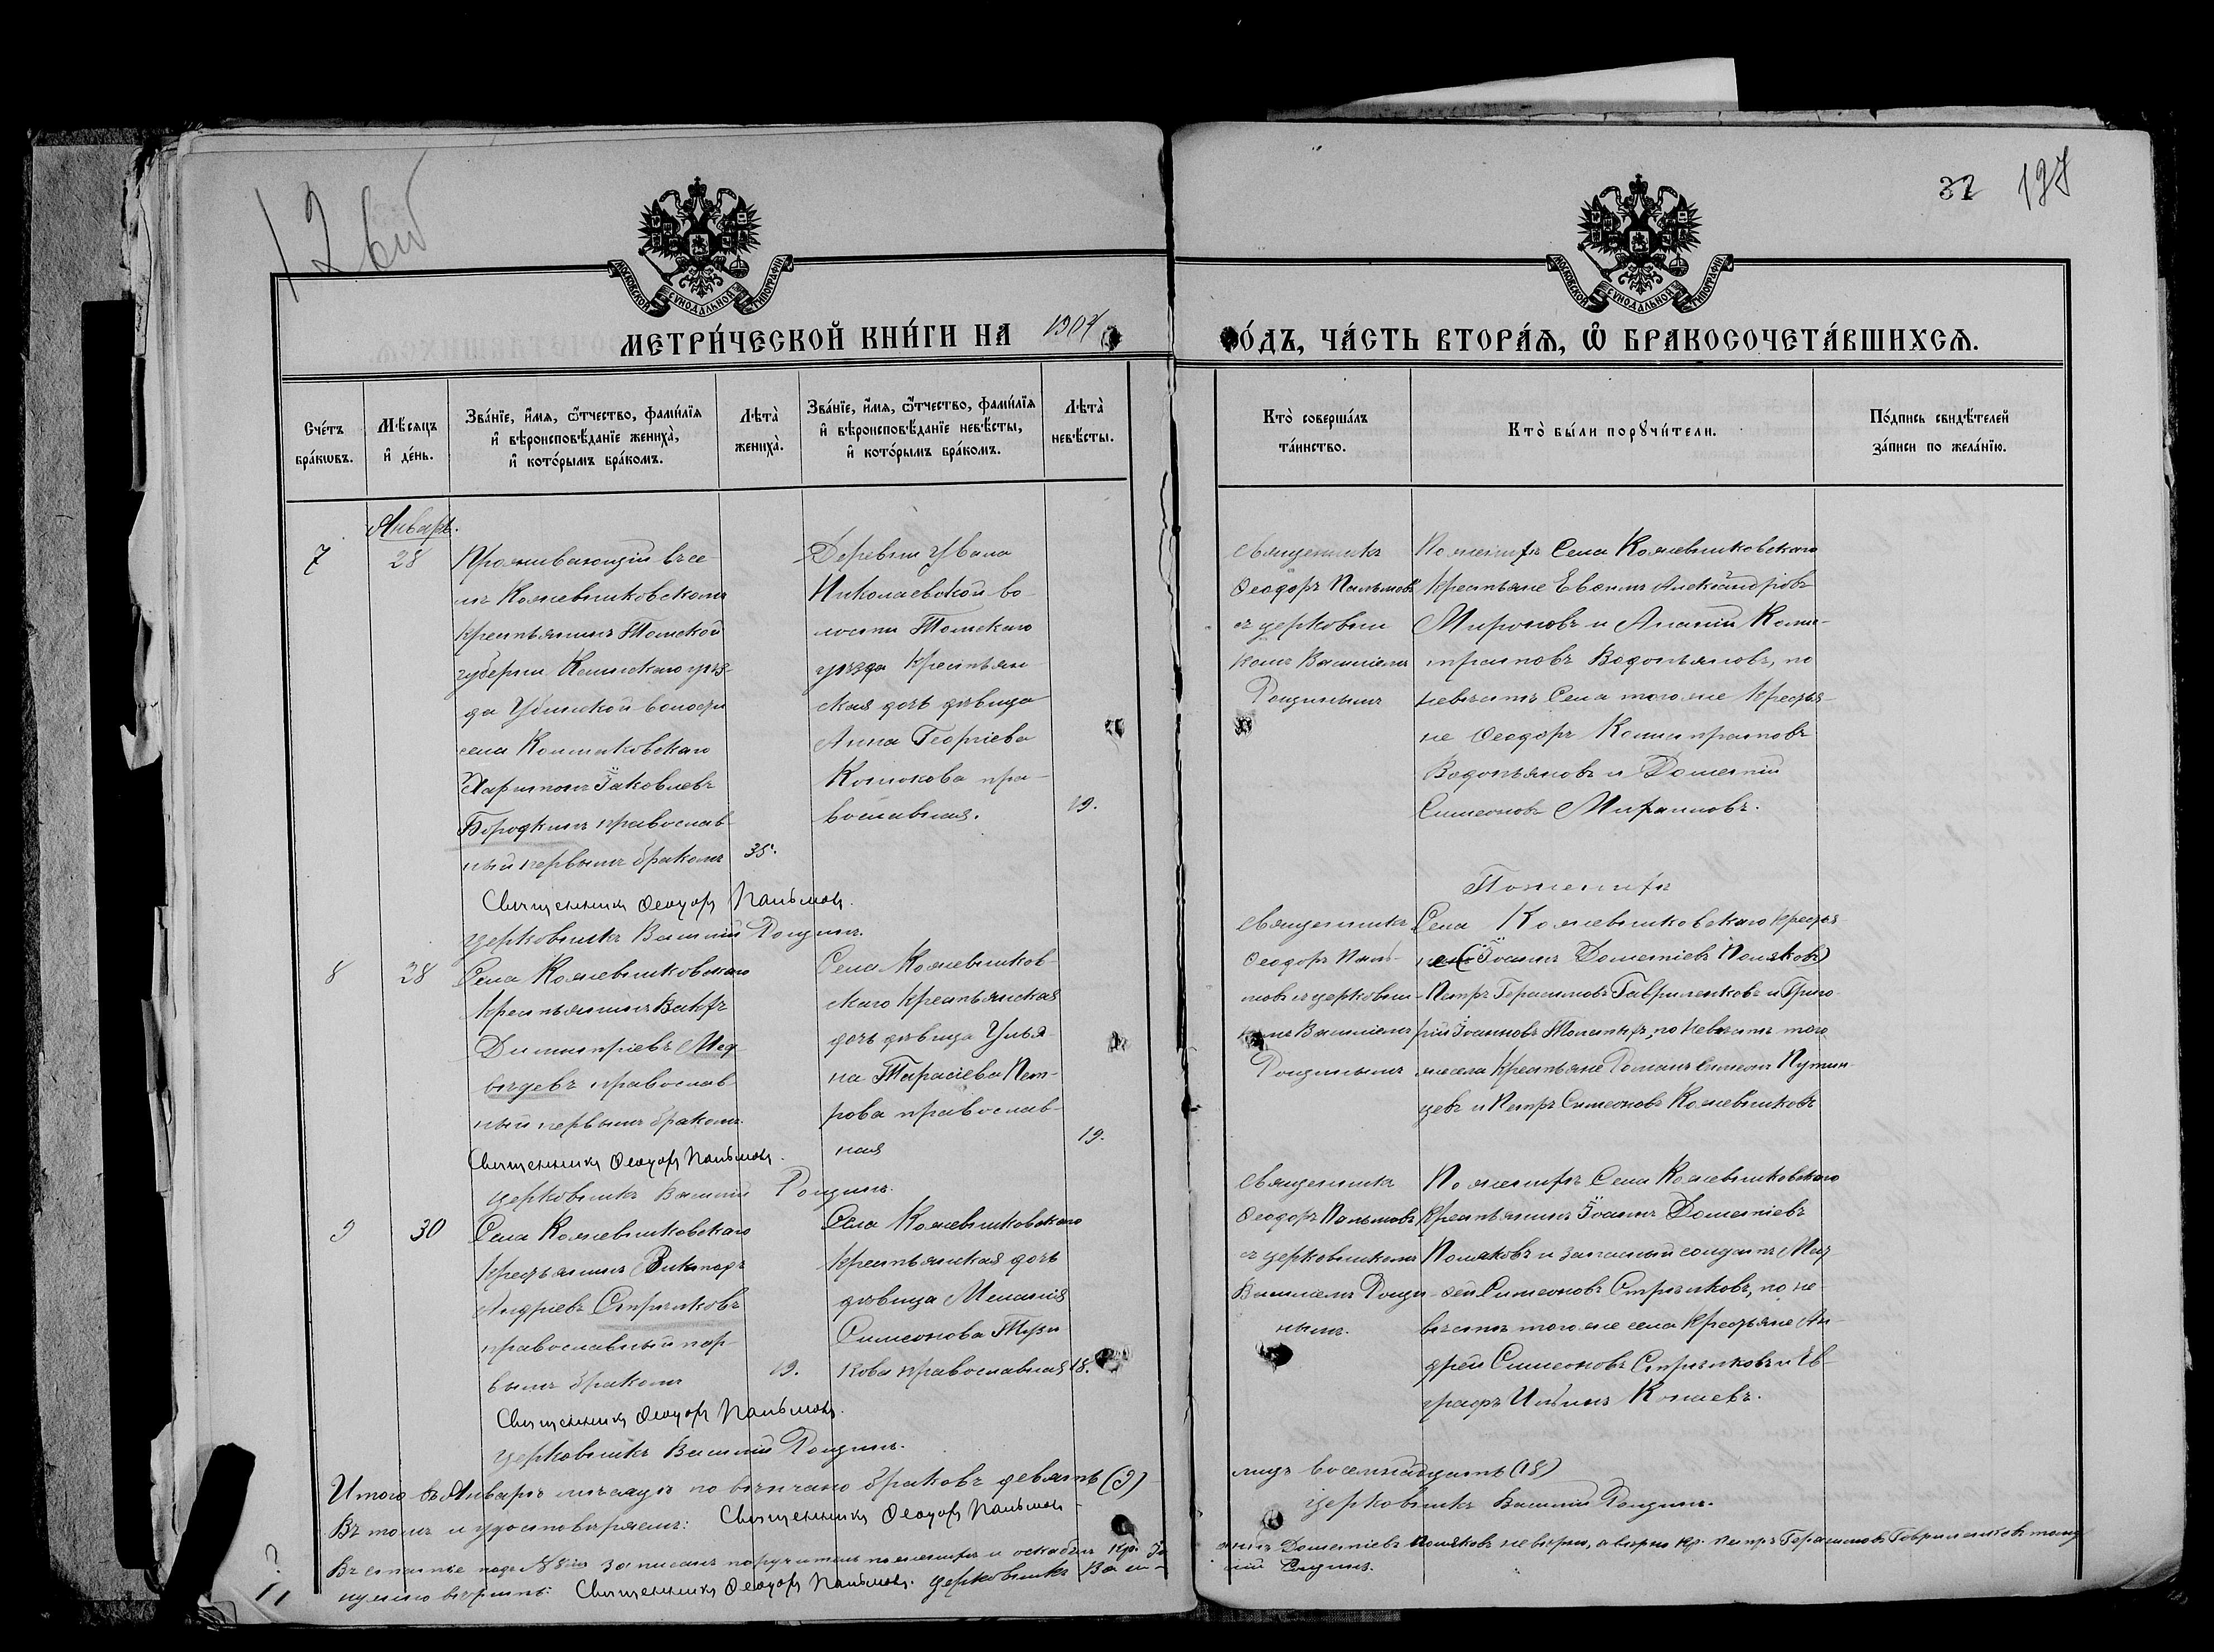 12 бит
32 127
МОСКОВСКОЙ СѴНОДАЛЬНОЙ ТИПОГРАФІИ
МОСКОВСКОЙ СѴНОДАЛЬНОЙ ТИПОГРАФІИ
МЕТРИ́ЧЕСКОЙ КНИ́ГИ НА 1904
О́ДЪ, ЧА́СТЬ ВТОРА́Ѧ, Ѽ БРАКОСОЧЕТА́ВШИХСѦ.
Сче́тъ бра́кѡвъ.
Мѣ́сяцъ и҆ де́нь.
Зва́нїе, и҆́мѧ, ѻ҆́тчество, фами́лїѧ
и҆ вѣроисповѣ́данїе жениха̀,
и҆ кото́рымъ бра́комъ.
Лѣта̀ жениха̀.
Зва́нїе, и҆́мѧ, ѻ҆́тчество, фами́лїѧ
и҆ вѣроисповѣ́данїе невѣ́сты,
и҆ кото́рымъ бра́комъ.
Лѣта̀ невѣ́сты.
Кто̀ соверша́лъ
та́инство.
Кто̀ бы́ли порꙋчи́тели.
По́дпись свидѣ́телей
за́писи по жела́нїю.
Январь.
7
28
Проживающій въ се-
лѣ Кожевниковскомъ
крестьянинъ Томской
губерніи Каинскаго уѣз-
да Убинской волости
села Колмаковскаго
Харитонъ Іаковлевъ
Бородкинъ православ
ный первымъ бракомъ
35.
Деревни Увала
Николаевской во-
лости Томскаго
уѣзда крестьян
ская дочь дѣвица
Анна Георгіева
Конюкова пра-
вославная.
19.
Священникъ
Ѳеодоръ Пальмовъ
съ церковни
комъ Василіемъ
Рощинымъ
По женихѣ Села Кожевниковскаго
крестьяне Евѳимъ Александровъ
Мироновъ и Ананій Кали-
стратовъ Водопьяновъ, по
невѣстѣ Села того же крестья-
не Ѳеодоръ Калистратовъ
Водопьяновъ и Дометій
Симеоновъ
Священникъ Ѳеодоръ Пальмовъ.
Церковникъ Василій Рощинъ.
8
28
Села Кожевниковскаго
крестьянинъ
Димитріевъ Мед-
вѣдевъ православ
ный первымъ бракомъ.
Села Кожевников-
скаго крестьянская
дочь дѣвица Улья-
на Тарасіева Пет-
рова православ-
ная
19.
Священникъ
Ѳеодоръ Паль-
мовъ съ церковни-
комъ Василіемъ
Рощинымъ
По женихѣ
Села Кожевниковскаго крестья
не (Іоаннъ Дометіевъ Поляковъ)
Петръ Герасимовъ Гавриленковъ и Григо-
рій Іоанновъ Толстыхъ, по невѣстѣ того
же села крестьяне Романъ Симеонъ Путин-
цевъ и Петръ Симеоновъ Кожевниковъ
Священникъ Ѳеодоръ Пальмовъ.
Церковникъ Василій Рощинъ.
9
30
Села Кожевниковскаго
крестьянинъ Викторъ
Андріевъ Стрѣлковъ
православный пер-
вымъ бракомъ
19.
Села Кожевниковскаго
крестьянская дочь
дѣвица Меланія
Симеонова
кова православная
18.
Священникъ
Ѳеодоръ Пальмовъ
съ церковникомъ
Василіемъ Рощи-
нымъ.
По женихѣ Села Кожевниковскаго
крестьянинъ Іоаннъ Дометіевъ
Поляковъ и запасный солдатъ
Симеоновъ Стрѣлковъ, по не-
вѣстѣ того же села крестьяне Ан-
дрей Симеоновъ Стрѣлковъ и Ев-
графъ Ильинъ
Священникъ Ѳеодоръ Пальмовъ.
Церковникъ Василій Рощинъ.
Итого въ Январѣ мѣсяцѣ повѣнчано браковъ девять (9)
лицъ восемнадцать (18)
Въ томъ и удостовѣряемъ: Священникъ Ѳеодоръ Пальмовъ
Церковникъ Василій Рощинъ.
Въ статьѣ подъ № 8 записанъ поручитель по женихѣ и оскобленъ кр. Іо-
аннъ Дометіевъ Поляковъ невѣрно, а вѣрно кр. Петръ Герасимовъ Гавриленковъ тому
вѣрить: Священникъ Ѳеодоръ Пальмовъ. Церковникъ Васи-
лій Рощинъ.